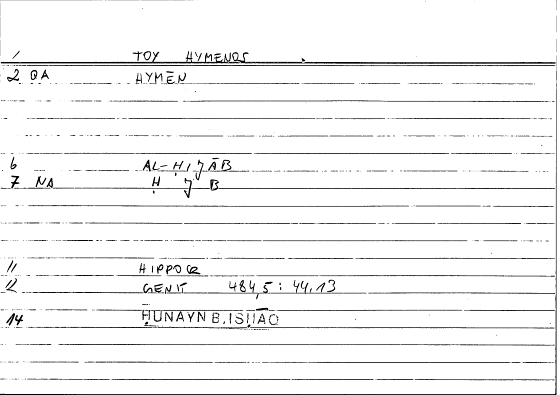 1 TOY HYMENOS
2 QA HYMĒN
6 AL-ḤIJĀB
7 NA Ḥ J B
11 HIPPOCR
12 GENIT 484,5 : 44,13
14 ḤUNAYN B. ISḤĀQ